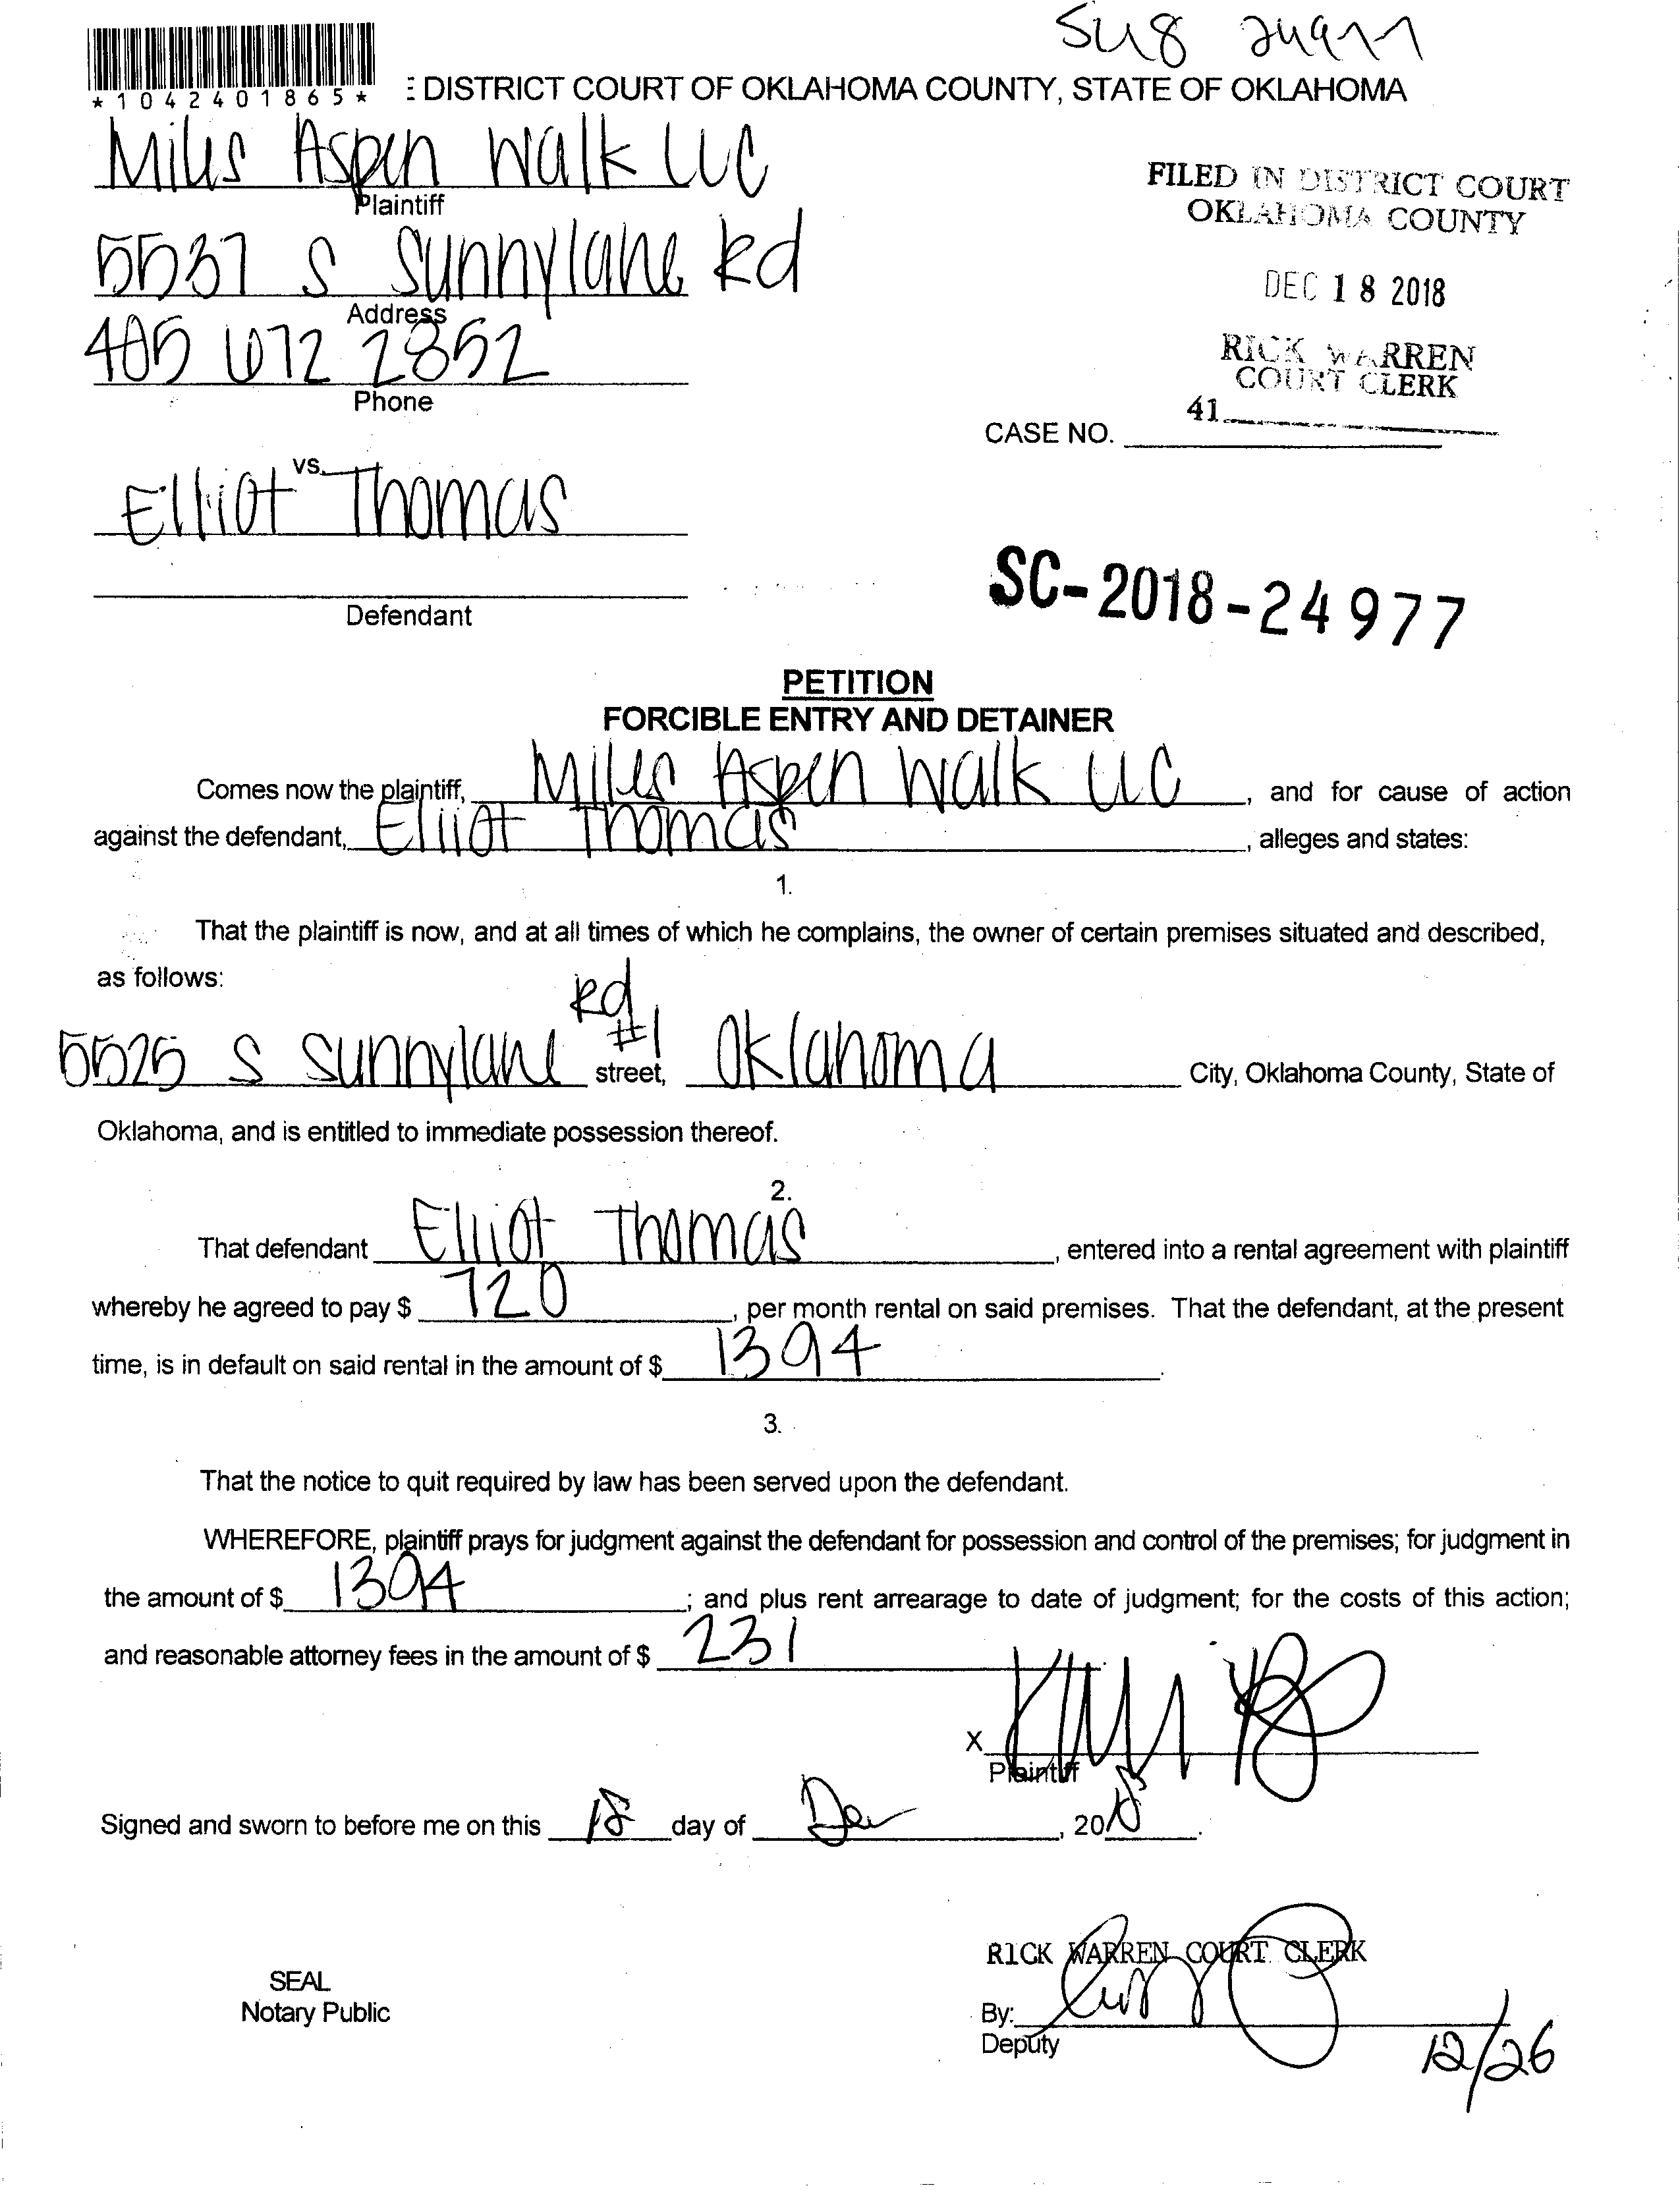 SC18 24977
*1042401865*
E DISTRICT COURT OF OKLAHOMA COUNTY, STATE OF OKLAHOMA
Miles Aspen Walk LLC
Plaintiff
FILED IN DISTRICT COURT
OKLAHOMA COUNTY
5537 S Sunnylane Rd
Address
DEC 18 2018
405 672 2852
Phone
RICK WARREN
COURT CLERK
41
CASE NO.
vs.
Elliot Thomas
Defendant
SC-2018-24977
PETITION
FORCIBLE ENTRY AND DETAINER
Comes now the plaintiff, Miles Aspen Walk LLC, and for cause of action
against the defendant, Elliot Thomas, alleges and states:
1.
That the plaintiff is now, and at all times of which he complains, the owner of certain premises situated and described,
as follows:
5525 S Sunnylane Rd #1 street, Oklahoma City, Oklahoma County, State of
Oklahoma, and is entitled to immediate possession thereof.
2.
That defendant Elliot Thomas, entered into a rental agreement with plaintiff
whereby he agreed to pay $ 720, per month rental on said premises. That the defendant, at the present
time, is in default on said rental in the amount of $ 1394.
3.
That the notice to quit required by law has been served upon the defendant.
WHEREFORE, plaintiff prays for judgment against the defendant for possession and control of the premises; for judgment in
the amount of $ 1394; and plus rent arrearage to date of judgment; for the costs of this action;
and reasonable attorney fees in the amount of $ 231
X
Plaintiff
Signed and sworn to before me on this 18 day of Dec, 2018.
RICK WARREN COURT CLERK
SEAL
Notary Public
By:
Deputy
12/26